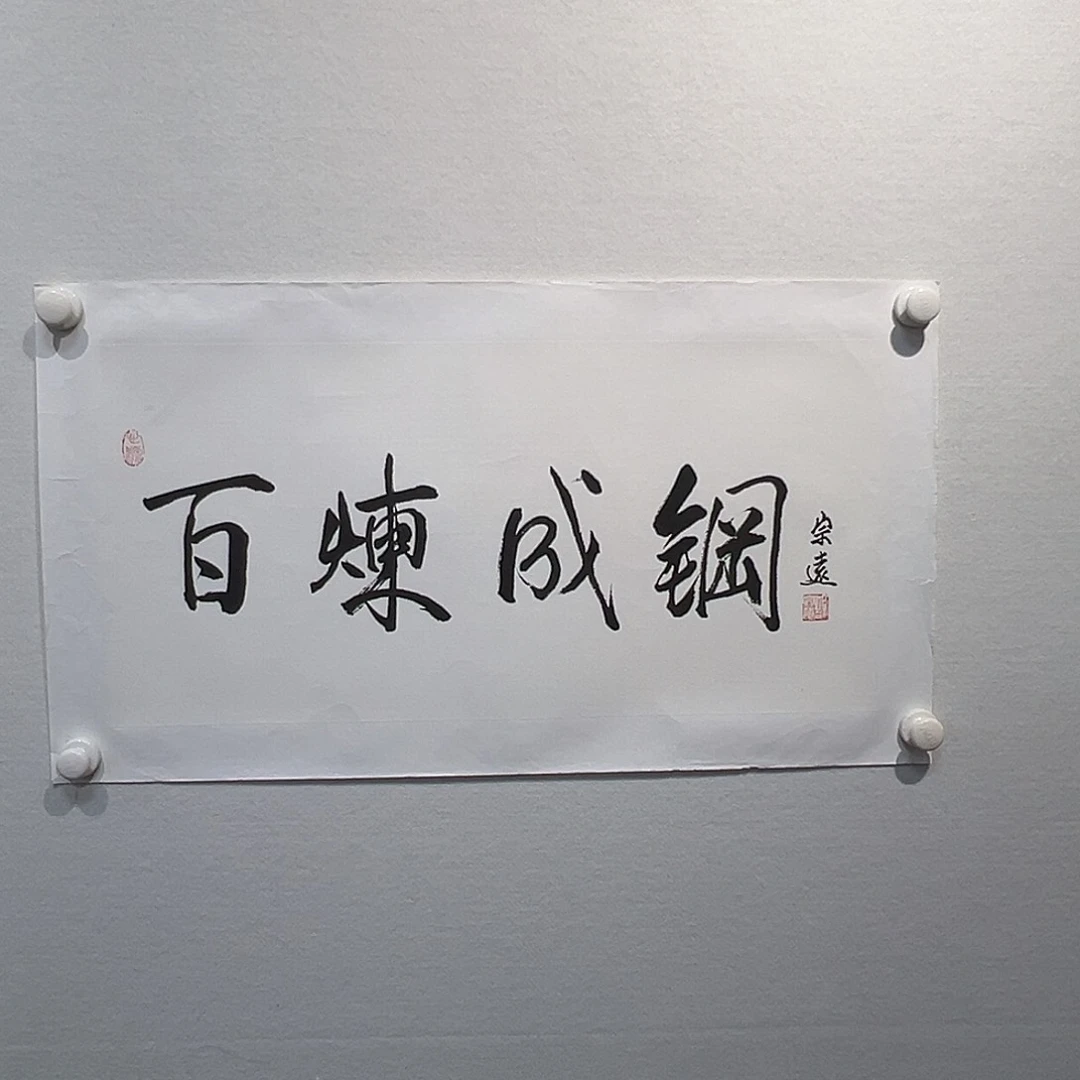 百煉成鋼
宗遠